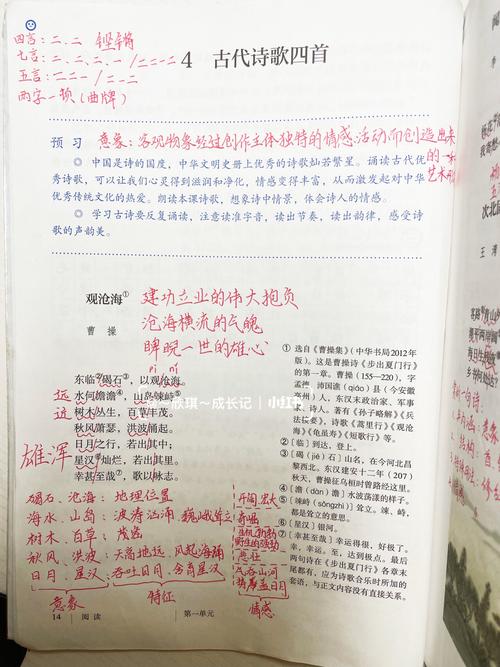 四言：二、二 铿锵
七言：二、二、二、一 / 二二一二
五言：二二一 / 二一二
两字一顿（曲牌）
4 古代诗歌四首
预习 意象：客观物象经过创作主体独特的情感活动而创造出来的一种艺术形
◎ 中国是诗的国度，中华文明史册上优秀的诗歌灿若繁星。诵读古代优
秀诗歌，可以让我们心灵得到滋润和净化，情感变得丰富，从而激发起对中华
优秀传统文化的热爱。朗读本课诗歌，想象诗中情景，体会诗人的情感。
◎ 学习古诗要反复诵读，注意读准字音，读出节奏，读出韵律，感受诗
歌的声韵美。
观沧海① 建功立业的伟大抱负
曹操 沧海横流的气魄
睥睨一世的雄心
pì nì
东临②碣石③，以观沧海。
远 水何澹澹④，山岛竦峙⑤。
近 树木丛生，百草丰茂。
秋风萧瑟，洪波涌起。
日月之行，若出其中；
星汉⑥灿烂，若出其里。
幸甚至哉⑦，歌以咏志。
雄浑
欣琪～成长记 | 小红书
① 选自《曹操集》（中华书局2012年
版）。这是曹操《步出夏门行》
的第一章。曹操（155—220），字
孟德，沛国谯（qiáo）县（今安徽
亳州）人，东汉末政治家、军事
家、诗人。著有《孙子略解》《兵
法接要》，诗歌《蒿里行》《观沧
海》《龟虽寿》《短歌行》等。
② 〔临〕到达，登上。
③ 〔碣（jié）石〕山名，在今河北昌
黎西北。东汉建安十二年（207）
秋天，曹操征乌桓时曾路经这里。
④ 〔澹（dàn）澹〕水波荡漾的样子。
⑤ 〔竦峙（sǒngzhì）〕耸立。竦、峙，
都是耸立的意思。
⑥ 〔星汉〕银河。
⑦ 〔幸甚至哉〕幸运得很，好极了。
幸，幸运。至，达到极点。最后
两句诗在《步出夏门行》各章末
尾都有，应为诗歌合乐时所加的
套语，与正文内容没有直接关系。
碣石、沧海：地理位置 开阔、宏大
海水、山岛：波涛汹涌，巍山耸立
树木、百草：茂盛
秋风、洪波：天高地远，风起海涌
日月、星汉：吞吐日月，含育星汉 气吞山河
意象 特征 情感
14 阅读 第一单元